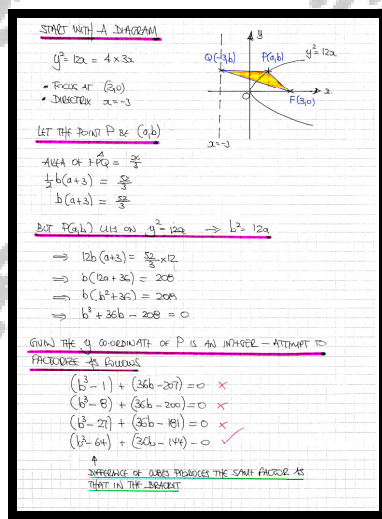 START WITH A DIAGRAM
y² = 12x = 4×3x
• FOCUS AT (3,0)
• DIRECTRIX x=-3
y
Q(-3,b)
P(a,b)
y²=12x
O
F(3,0)
x
x=-3
LET THE POINT P BE (a,b)
AREA OF FPQ =
½b(a+3) =
b(a+3) = 52/3
BUT P(a,b) LIES ON y²=12x ⇒ b²=12a
⇒ 12b(a+3) = 52/3 ×12
⇒ b(12a+36) = 208
⇒ b(b²+36) = 208
⇒ b³+36b-208 = 0
GIVEN THE y CO-ORDINATE OF P IS AN INTEGER - ATTEMPT TO
FACTORIZE AS FOLLOWS
(b³-1) + (36b-207) = 0 ×
(b³-8) + (36b-200) = 0 ×
(b³-27) + (36b-181) = 0 ×
(b³-64) + (36b-144) = 0 ✓
DIFFERENCE OF CUBES PRODUCES THE SAME FACTOR AS
THAT IN THE BRACKET